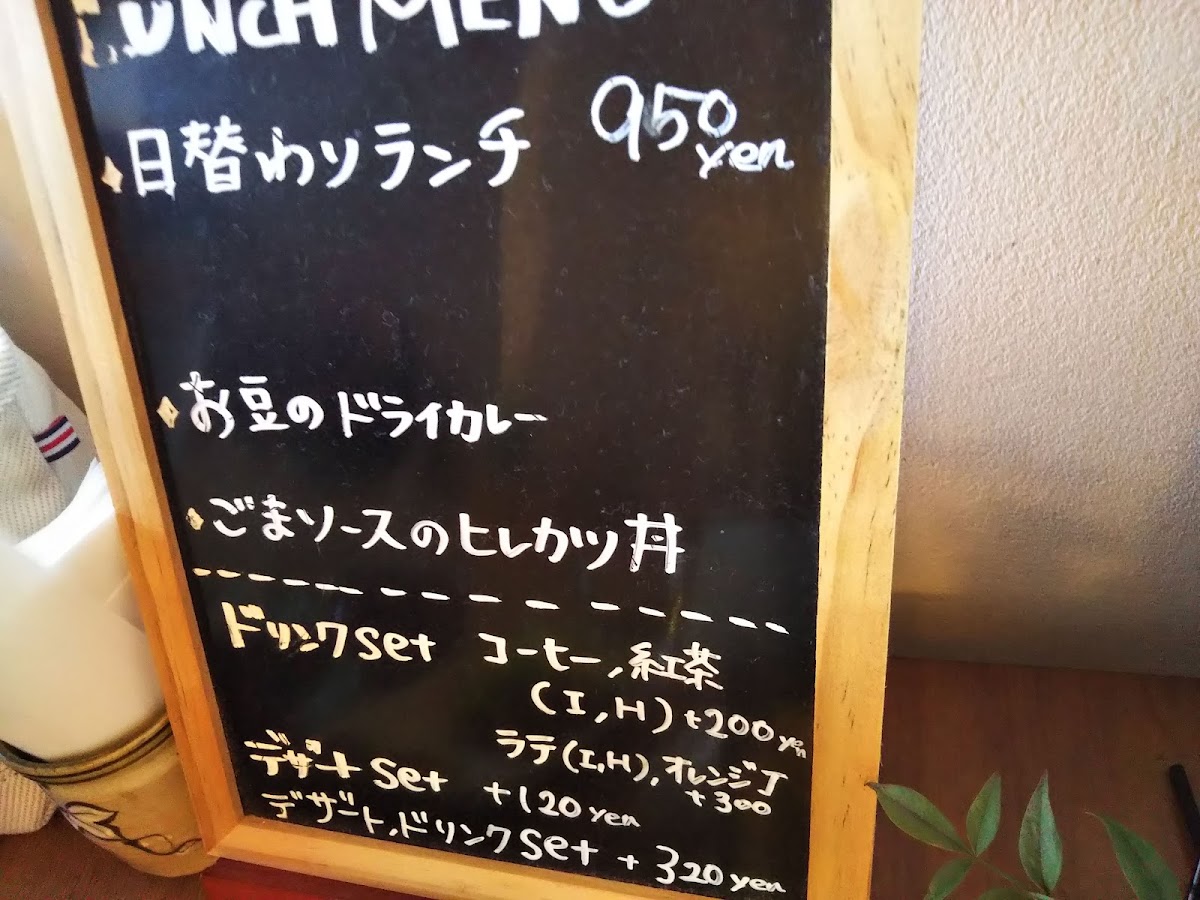 LUNCH MENU
日替わりランチ 950 yen
お豆のドライカレー
ごまソースのヒレカツ丼
ドリンクset コーヒー,紅茶
(I,H) +200 yen
ラテ(I,H),オレンジJ
+300
デザートset +120 yen
デザート,ドリンクset + 320 yen